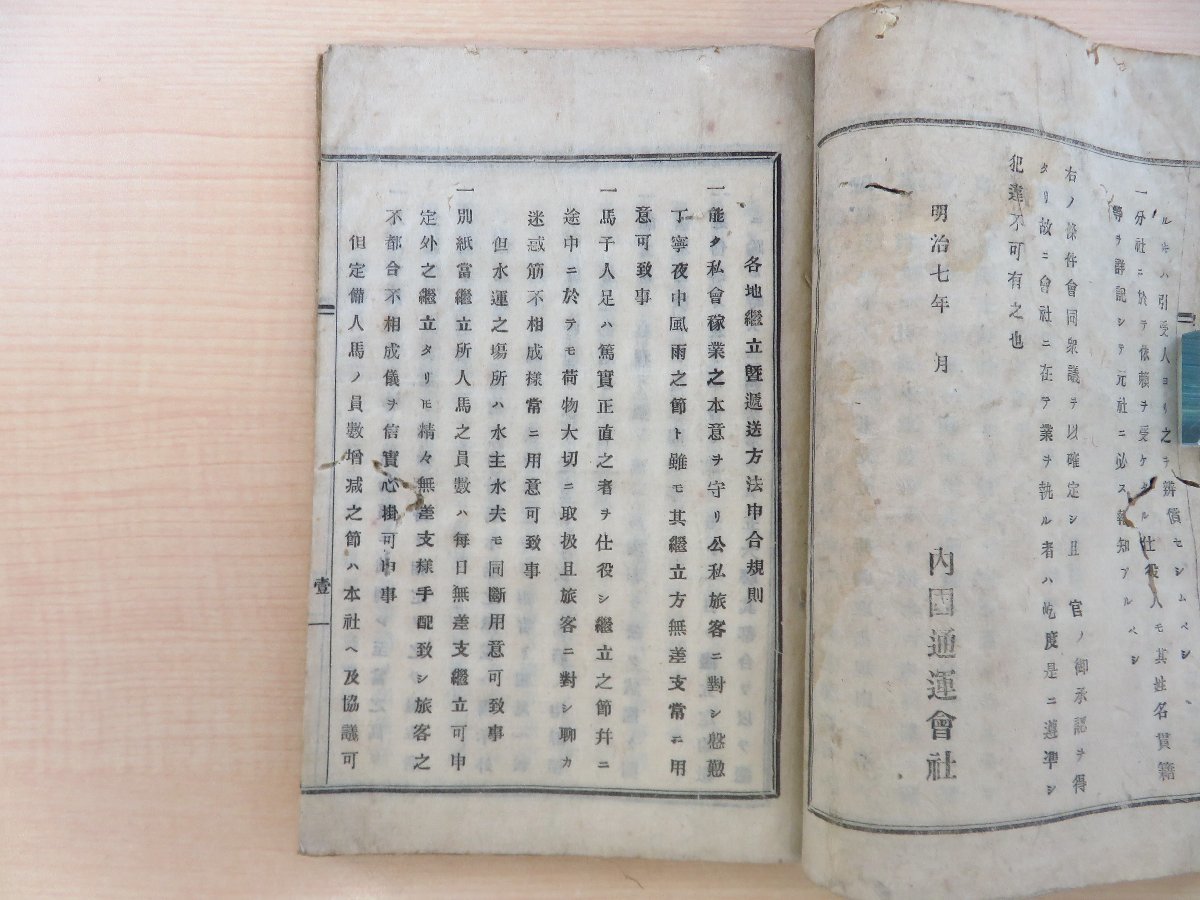 ルキハ引受人ヨリ之ヲ辨償セシムベシ
一分社ニ於テ依賴ヲ受ケタル仕役人モ其姓名貫籍
等ヲ詳記シテ元社ニ必ス報知アルベシ
右ノ條件會同衆議ヲ以確定シ且 官ノ御承認ヲ得
タリ故ニ會社ニ在テ業ヲ執ル者ハ屹度是ニ遵準シ
犯違不可有之也
明治七年 月
內國通運會社
各地繼立曁遞送方法申合規則
一能ク私會稼業之本意ヲ守リ公私旅客ニ對シ慇懃
丁寧夜中風雨之節ト雖モ其繼立方無差支常ニ用
意可致事
一馬子人足ハ篤實正直之者ヲ仕役シ繼立之節幷ニ
途中ニ於テモ荷物大切ニ取扱且旅客ニ對シ聊カ
迷惑筋不相成樣常ニ用意可致事
但水運之場所ハ水主水夫モ同斷用意可致事
一別紙當繼立所人馬之員數ハ每日無差支繼立可申
定外之繼立タリモ精々無差支樣手配致シ旅客之
不都合不相成儀ヲ信實心掛可申事
但定備人馬ノ員數增減之節ハ本社ヘ及協議可
壹